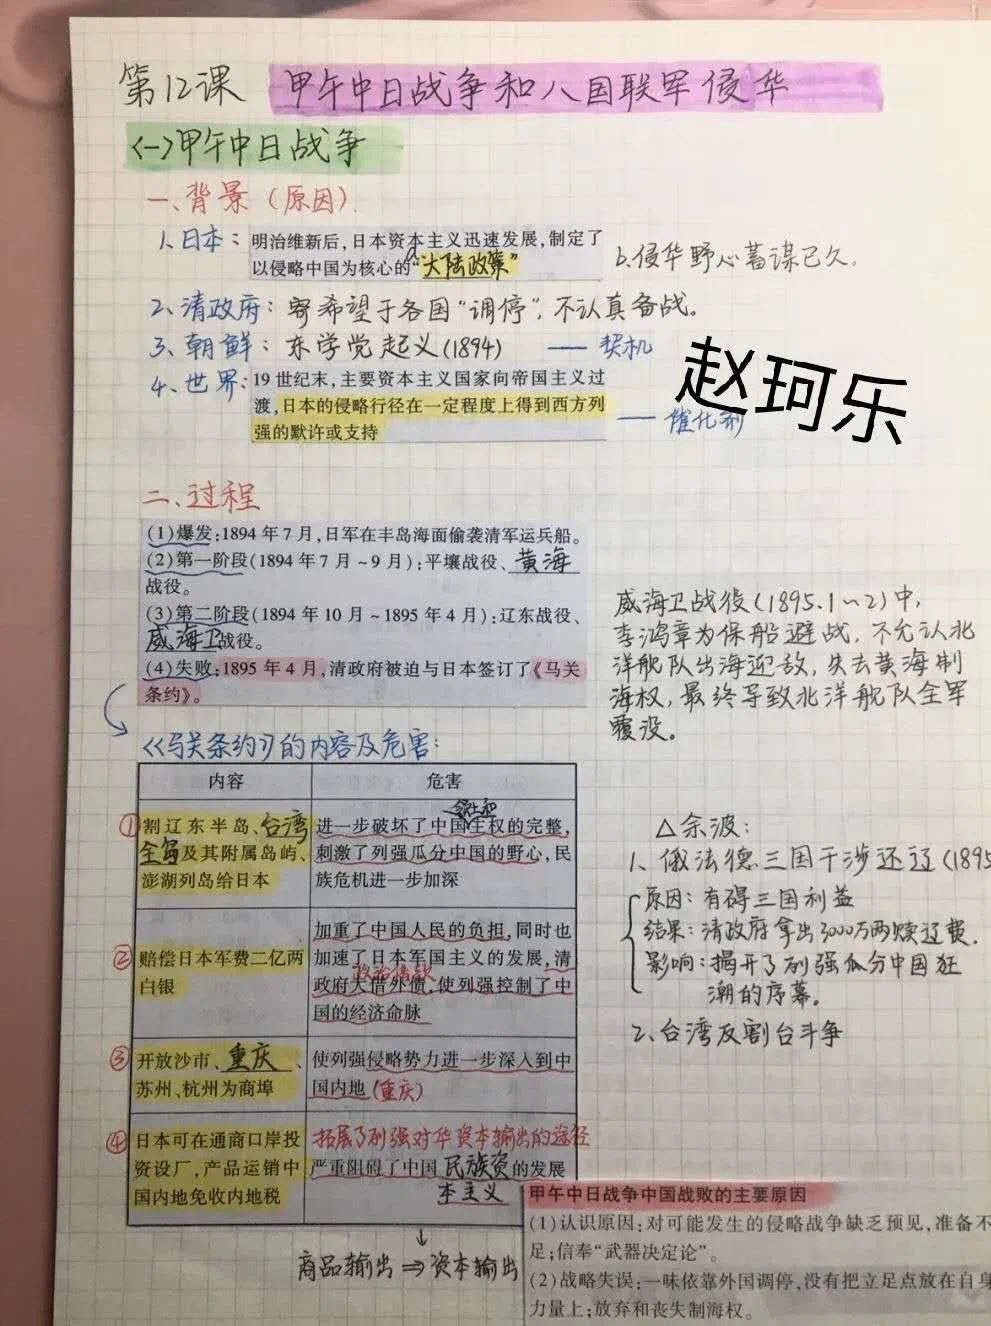 第12课 甲午中日战争和八国联军侵华
<一>甲午中日战争
一、背景(原因)
1.日本:明治维新后,日本资本主义迅速发展,制定了
以侵略中国为核心的a“大陆政策” b.侵华野心蓄谋已久.
2.清政府:寄希望于各国“调停”,不认真备战。
3.朝鲜:东学党起义(1894) —— 契机
赵珂乐
4.世界:19世纪末,主要资本主义国家向帝国主义过
渡,日本的侵略行径在一定程度上得到西方列
强的默许或支持 —— 催化剂
二、过程
(1)爆发:1894年7月,日军在丰岛海面偷袭清军运兵船。
(2)第一阶段(1894年7月~9月):平壤战役、黄海
战役。
(3)第二阶段(1894年10月~1895年4月):辽东战役、
威海卫战役。
(4)失败:1895年4月,清政府被迫与日本签订了《马关
条约》。
威海卫战役(1895.1~2)中,
李鸿章为保船避战,不允认北
洋舰队出海迎敌,失去黄海制
海权,最终导致北洋舰队全军
覆没。
《马关条约》的内容及危害:
内容 危害
①割辽东半岛、台湾
全岛及其附属岛屿、
澎湖列岛给日本
领土和
进一步破坏了中国主权的完整,
刺激了列强瓜分中国的野心,民
族危机进一步加深
②赔偿日本军费二亿两
白银
加重了中国人民的负担,同时也
加速了日本军国主义的发展,清
政治借款
政府大借外债,使列强控制了中
国的经济命脉
③开放沙市、重庆、
苏州、杭州为商埠
使列强侵略势力进一步深入到中
国内地(重庆)
④日本可在通商口岸投
资设厂,产品运销中
国内地免收内地税
拓展了列强对华资本输出的途径
严重阻碍了中国民族资的发展
本主义
↓
商品输出⇒资本输出
△余波:
1、俄法德三国干涉还辽(1895
原因:有碍三国利益
结果:清政府拿出3000万两赎辽费.
影响:揭开了列强瓜分中国狂
潮的序幕。
2、台湾反割台斗争
甲午中日战争中国战败的主要原因
(1)认识原因:对可能发生的侵略战争缺乏预见,准备不
足;信奉“武器决定论”。
(2)战略失误:一味依靠外国调停,没有把立足点放在自身
力量上;放弃和丧失制海权。